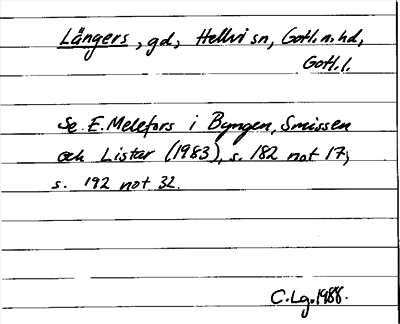 Längers, gd, Hellvi sn, Gotl. n. hd,
Gotl. l.
Se E. Melefors i Byngen, Smissen
och Listar (1983), s. 182 not 17,
s. 192 not 32.
C. Lg. 1988.